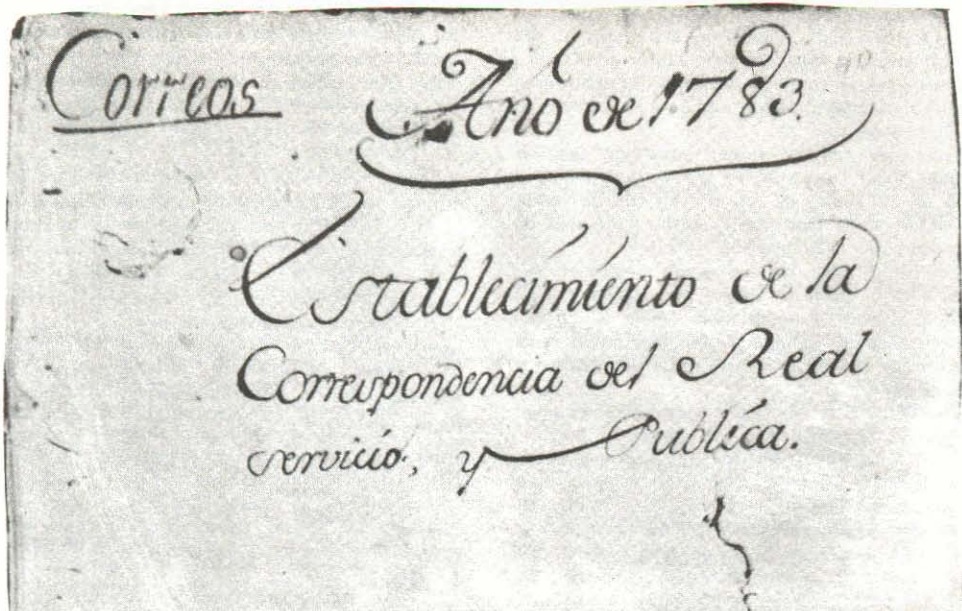 Correos
Año de 1783.
Establecimiento de la
Correspondencia del Real
servicio, y Publica.